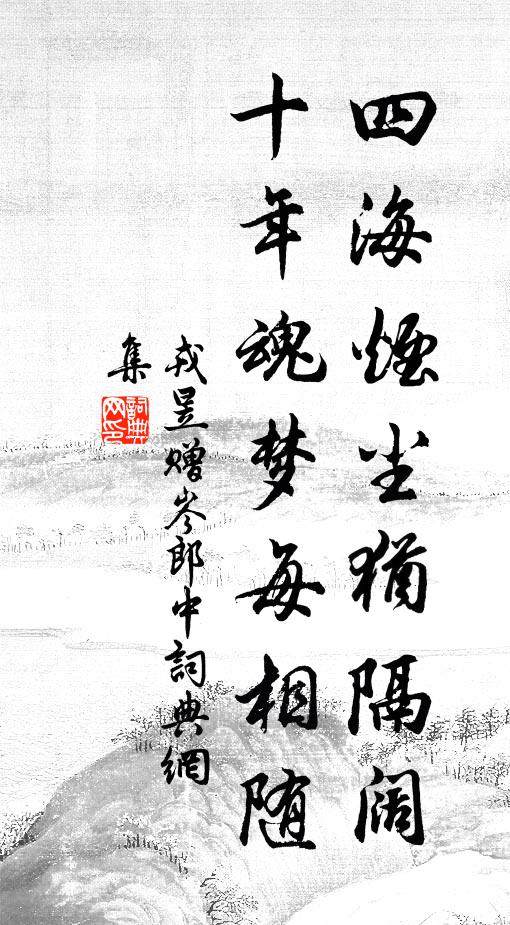 四海煙尘猶隔阔
十年魂梦每相随
戎昱赠岑郎中詞典網
集
詞典
网印